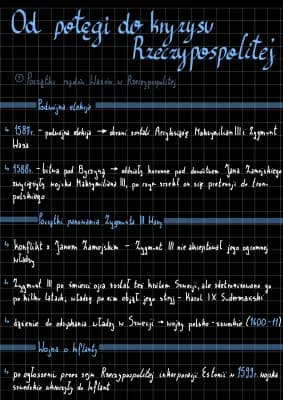 Od potęgi do kryzysu
Rzeczypospolitej
① Początki rządów Wazów w Rzeczypospolitej
Podwójna elekcja
↳ 1587r. - podwójna elekcja → obrani zostali Arcyksiążę Maksymilian III i Zygmunt
Waza
↳ 1588r. - bitwa pod Byczyną → oddziały koronne pod dowództwem Jana Zamojskiego
zwyciężyły wojska Maksymiliana III, po czym zrzekł on się pretensji do tronu
polskiego
Początki panowania Zygmunta III Wazy
↳ konflikt z Janem Zamojskim - Zygmunt III nie akceptował jego ogromnej
władzy
↳ Zygmunt III po śmierci ojca został też królem Szwecji, ale zdetronizowano go
po kilku latach, władzę po nim objął jego stryj - Karol IX Sudermański
↳ dążenie do odzyskania władzy w Szwecji → wojny polsko-szwedzkie (1600-11)
Wojna o Inflanty
↳ po ogłoszeniu przez sejm Rzeczypospolitej inkorporacji Estonii w 1599r. wojska
szwedzkie wkroczyły do Inflant